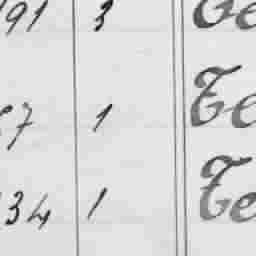 91 3 Te
7 1 Te
34 1 Te